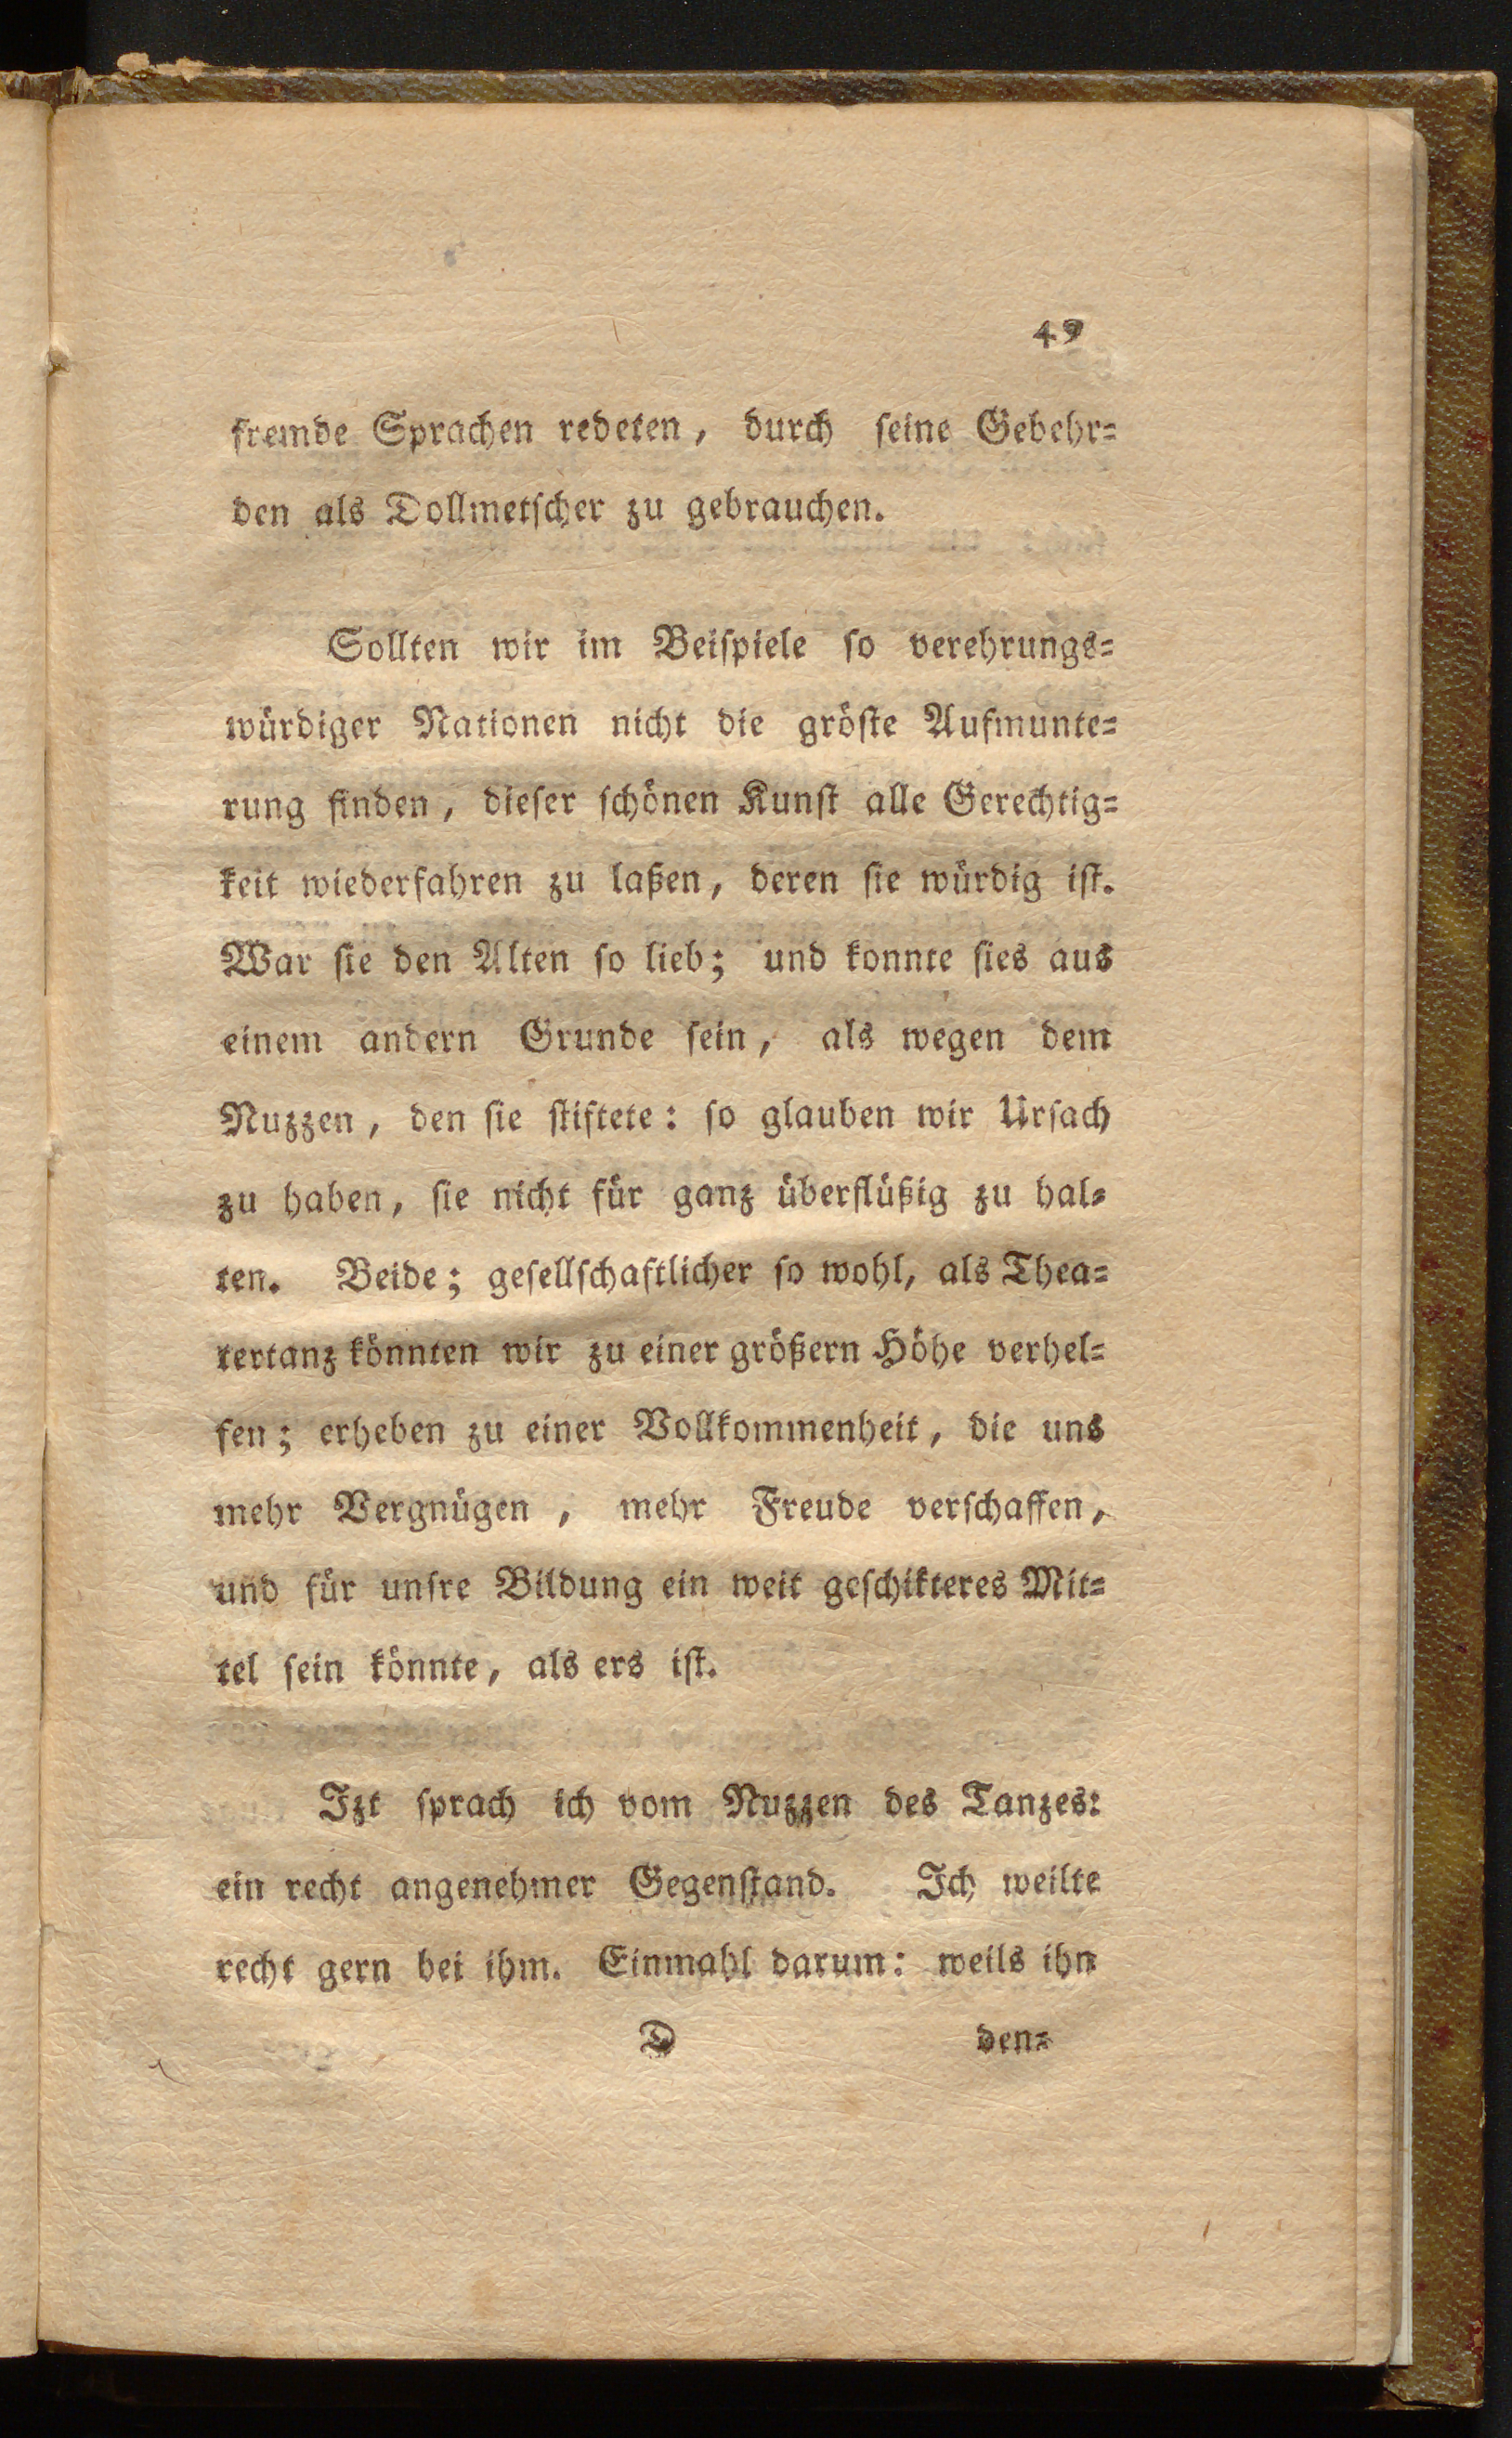 49
fremde Sprachen redeten, durch ſeine Gebehr⸗
den als Dollmetſcher zu gebrauchen.
Sollten wir im Beiſpiele ſo verehrungs⸗
würdiger Nationen nicht die gröſte Aufmunte⸗
rung finden, dieſer ſchönen Kunſt alle Gerechtig⸗
keit wiederfahren zu laßen, deren ſie würdig iſt.
War ſie den Alten ſo lieb; und konnte ſies aus
einem andern Grunde ſein, als wegen dem
Nuzzen, den ſie ſtiftete: ſo glauben wir Urſach
zu haben, ſie nicht für ganz überflüßig zu hal⸗
ten. Beide; geſellſchaftlicher ſo wohl, als Thea⸗
tertanz könnten wir zu einer größern Höhe verhel⸗
fen; erheben zu einer Vollkommenheit, die uns
mehr Vergnügen, mehr Freude verſchaffen,
und für unſre Bildung ein weit geſchikteres Mit⸗
tel ſein könnte, als ers iſt.
Izt ſprach ich vom Nuzzen des Tanzes:
ein recht angenehmer Gegenſtand. Ich weilte
recht gern bei ihm. Einmahl darum: weils ihn
D den⸗